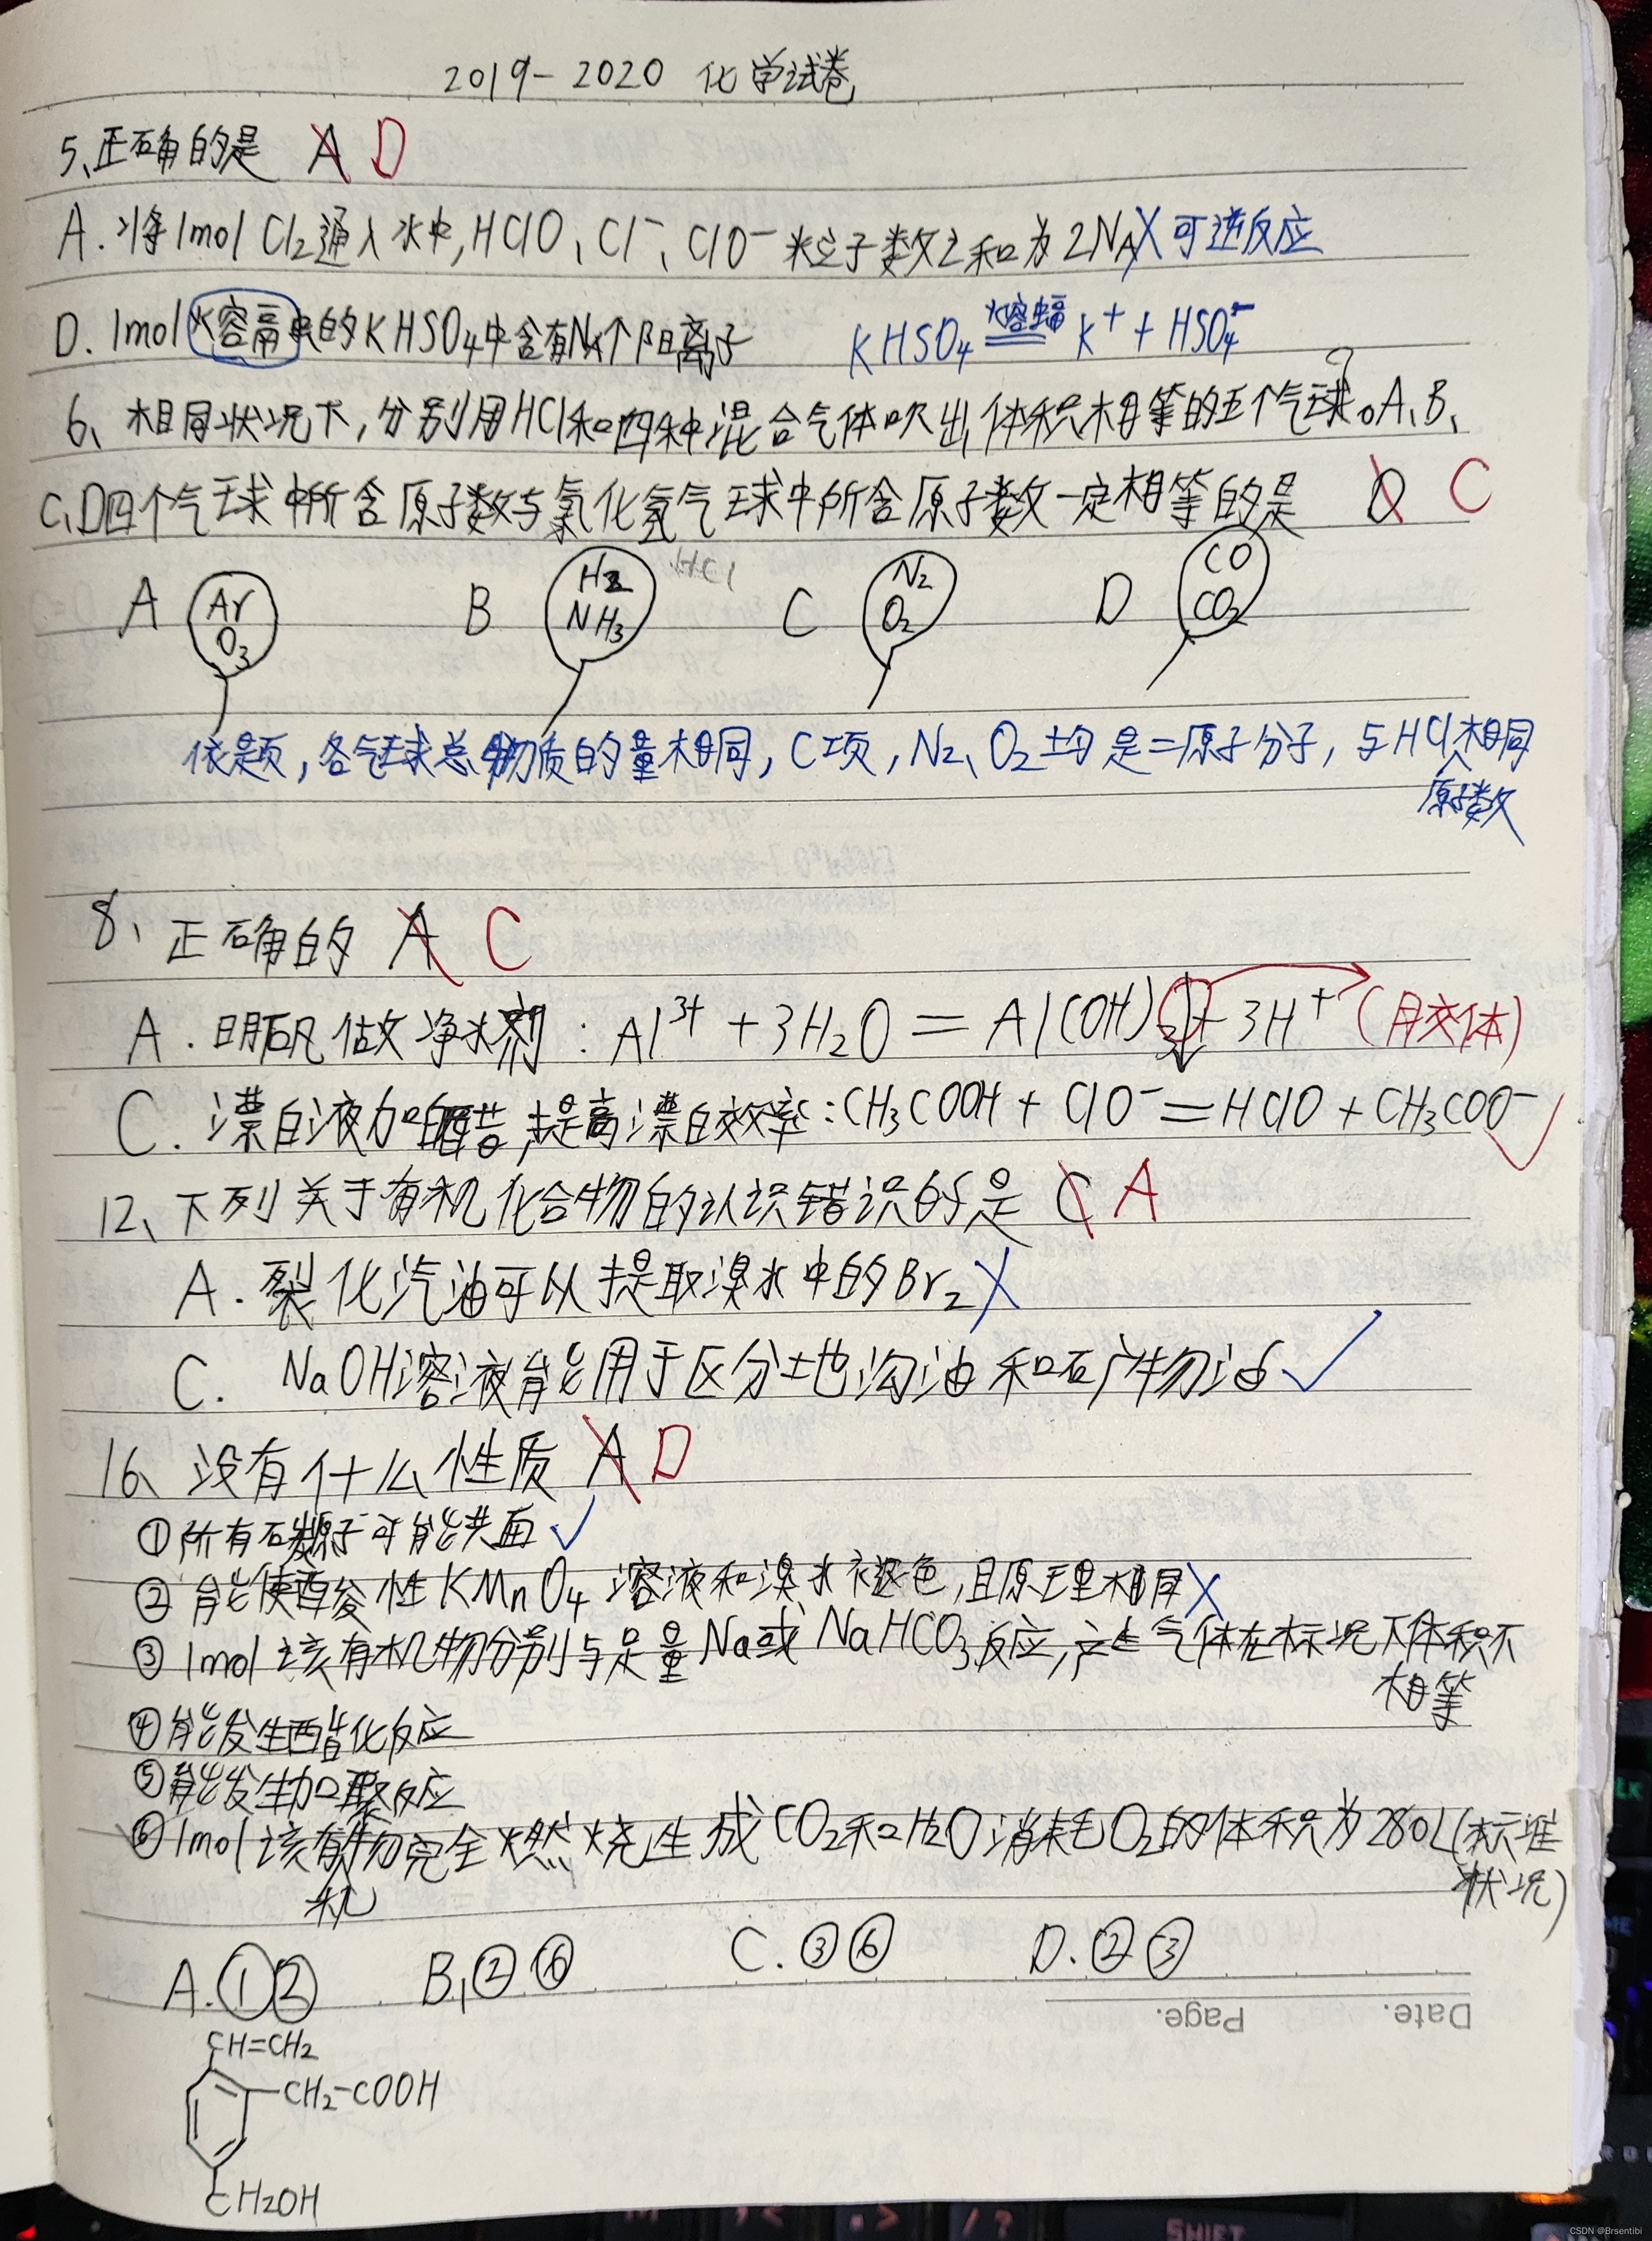 2019-2020 化学试卷
5、正确的是 A D
A.将1mol Cl₂通入水中,HClO、Cl⁻、ClO⁻粒子数之和为2NA X 可逆反应
D. 1mol熔融的KHSO₄中含有NA个阳离子 KHSO₄ 熔融 == K⁺ + HSO₄⁻
6、相同状况下,分别用HCl和四种混合气体吹出体积相等的五个气球。A、B、
C、D四个气球中所含原子数与氯化氢气球中所含原子数一定相等的是 D C
A Ar O₃ B H₂ NH₃ HCl C N₂ O₂ D CO CO₂
依题,各气球总物质的量相同,C项,N₂、O₂均是二原子分子,与HCl相同
原子数
8、正确的 A C
A.明矾做净水剂:Al³⁺ + 3H₂O = Al(OH)₃↓+3H⁺ (胶体)
C.漂白液加白醋,提高漂白效率:CH₃COOH + ClO⁻ = HClO + CH₃COO⁻ ✓
12、下列关于有机化合物的认识错误的是 C A
A.裂化汽油可以提取溴水中的Br₂ X
C. NaOH溶液能用于区分地沟油和矿物油 ✓
16、没有什么性质 A D
①所有碳原子可能共面 ✓
②能使酸性KMnO₄溶液和溴水褪色,且原理相同 X
③1mol该有机物分别与足量Na或NaHCO₃反应,产生气体在标况下体积不
相等
④能发生酯化反应
⑤能发生加聚反应
⑥1mol该有机物完全燃烧生成CO₂和H₂O消耗O₂的体积为280L(标准
状况)
A.①② B.②⑥ C.③⑥ D.②③
Date. Page.
CH=CH₂
CH₂-COOH
CH₂OH
SHIFT
CSDN @Brsentibi